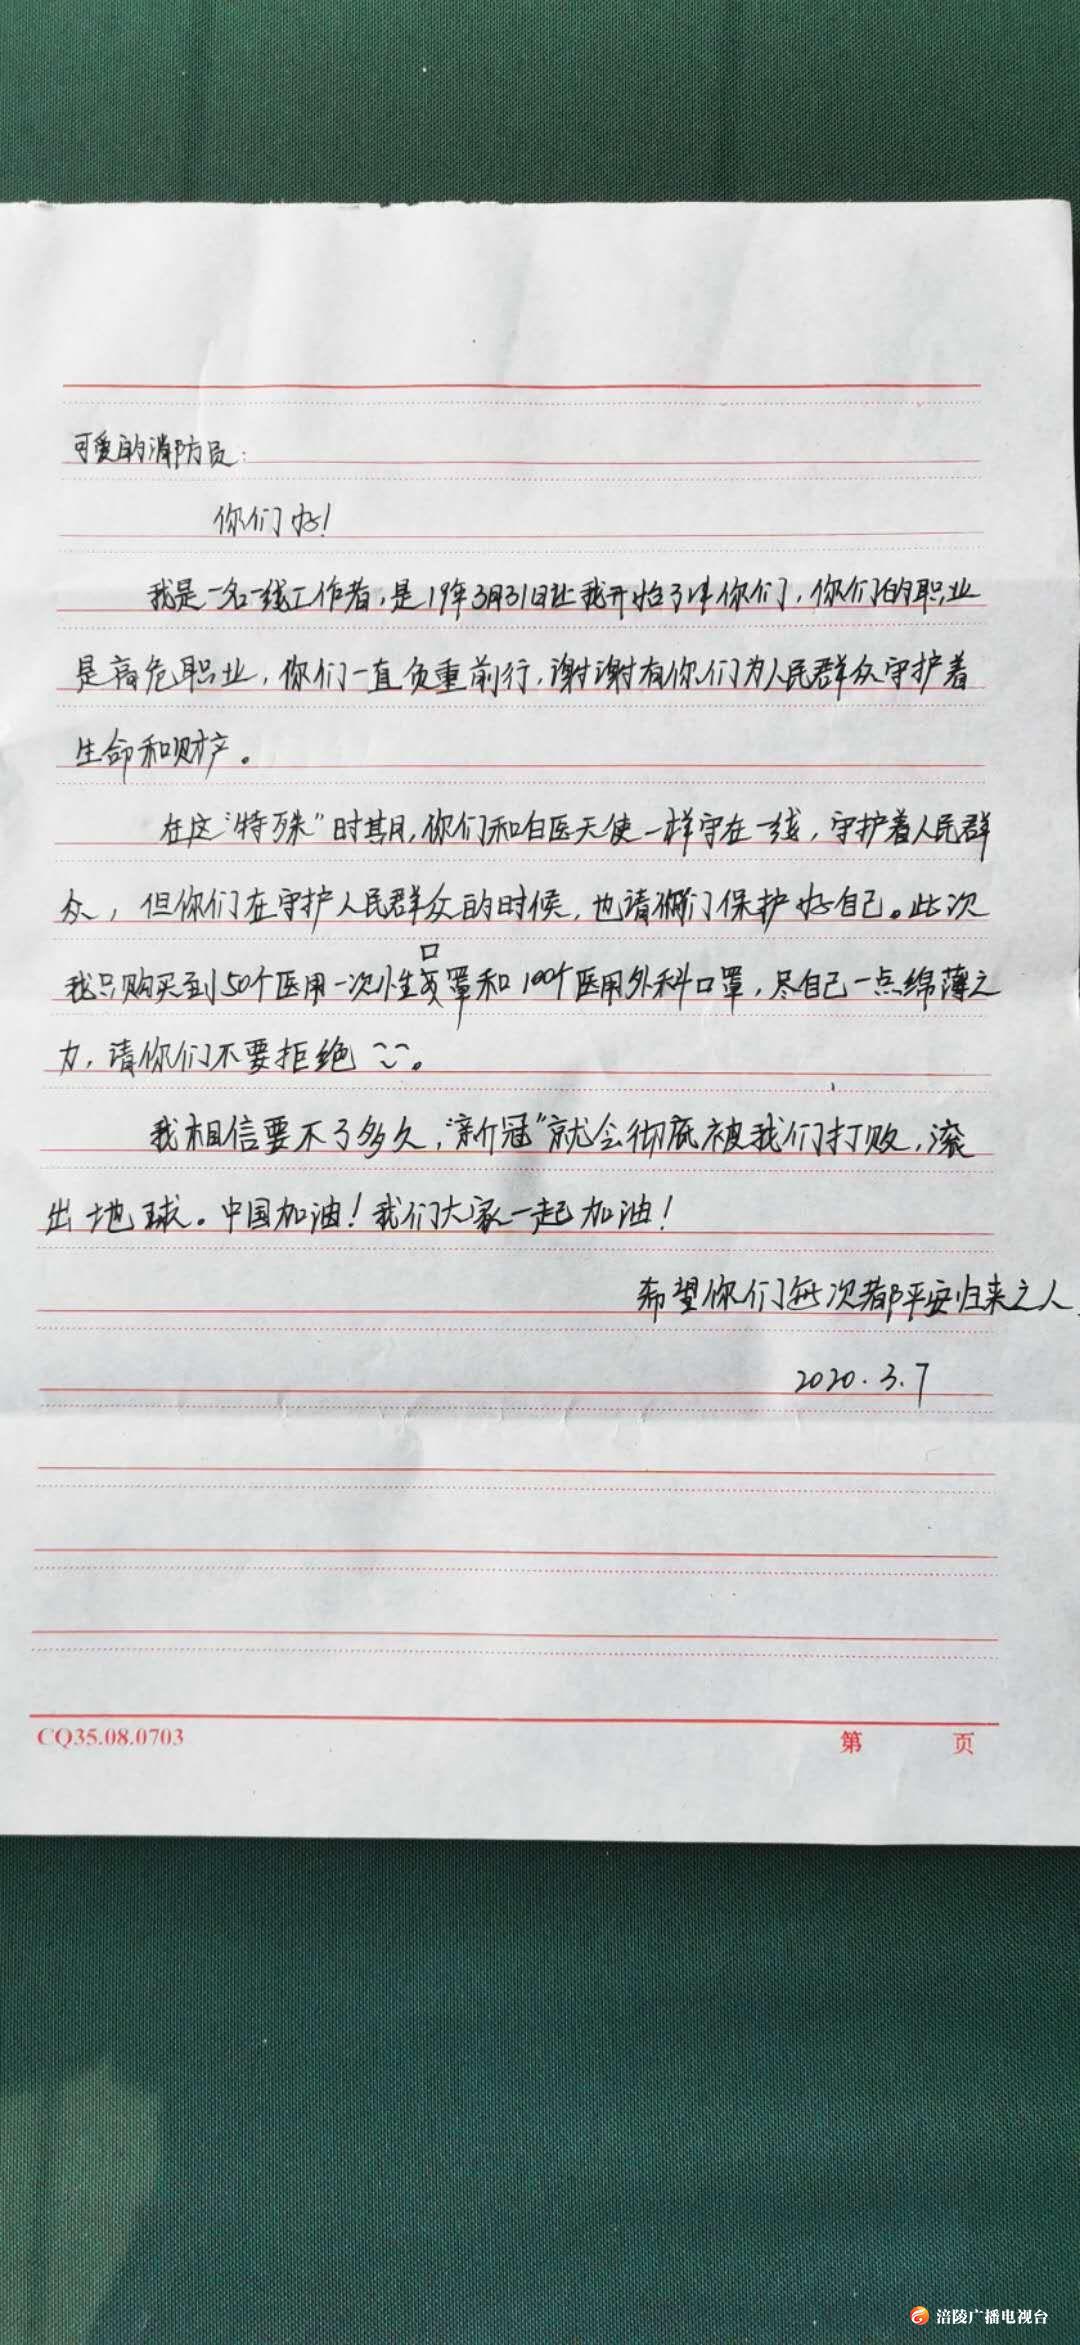 可爱的消防员：
你们好！
我是一名一线工作者，是19年3月31日让我开始了解你们，你们的职业
是高危职业，你们一直负重前行，谢谢有你们为人民群众守护着
生命和财产。
在这“特殊”时期，你们和白医天使一样守在一线，守护着人民群
众，但你们在守护人民群众的时候，也请你们保护好自己。此次
我只购买到50个医用一次性口罩和100个医用外科口罩，尽自己一点绵薄之
力，请你们不要拒绝。
我相信要不了多久，“新冠”就会彻底被我们打败，滚
出地球。中国加油！我们大家一起加油！
希望你们每次都平安归来之人
2020.3.7
CQ35.08.0703 第 页
涪陵广播电视台